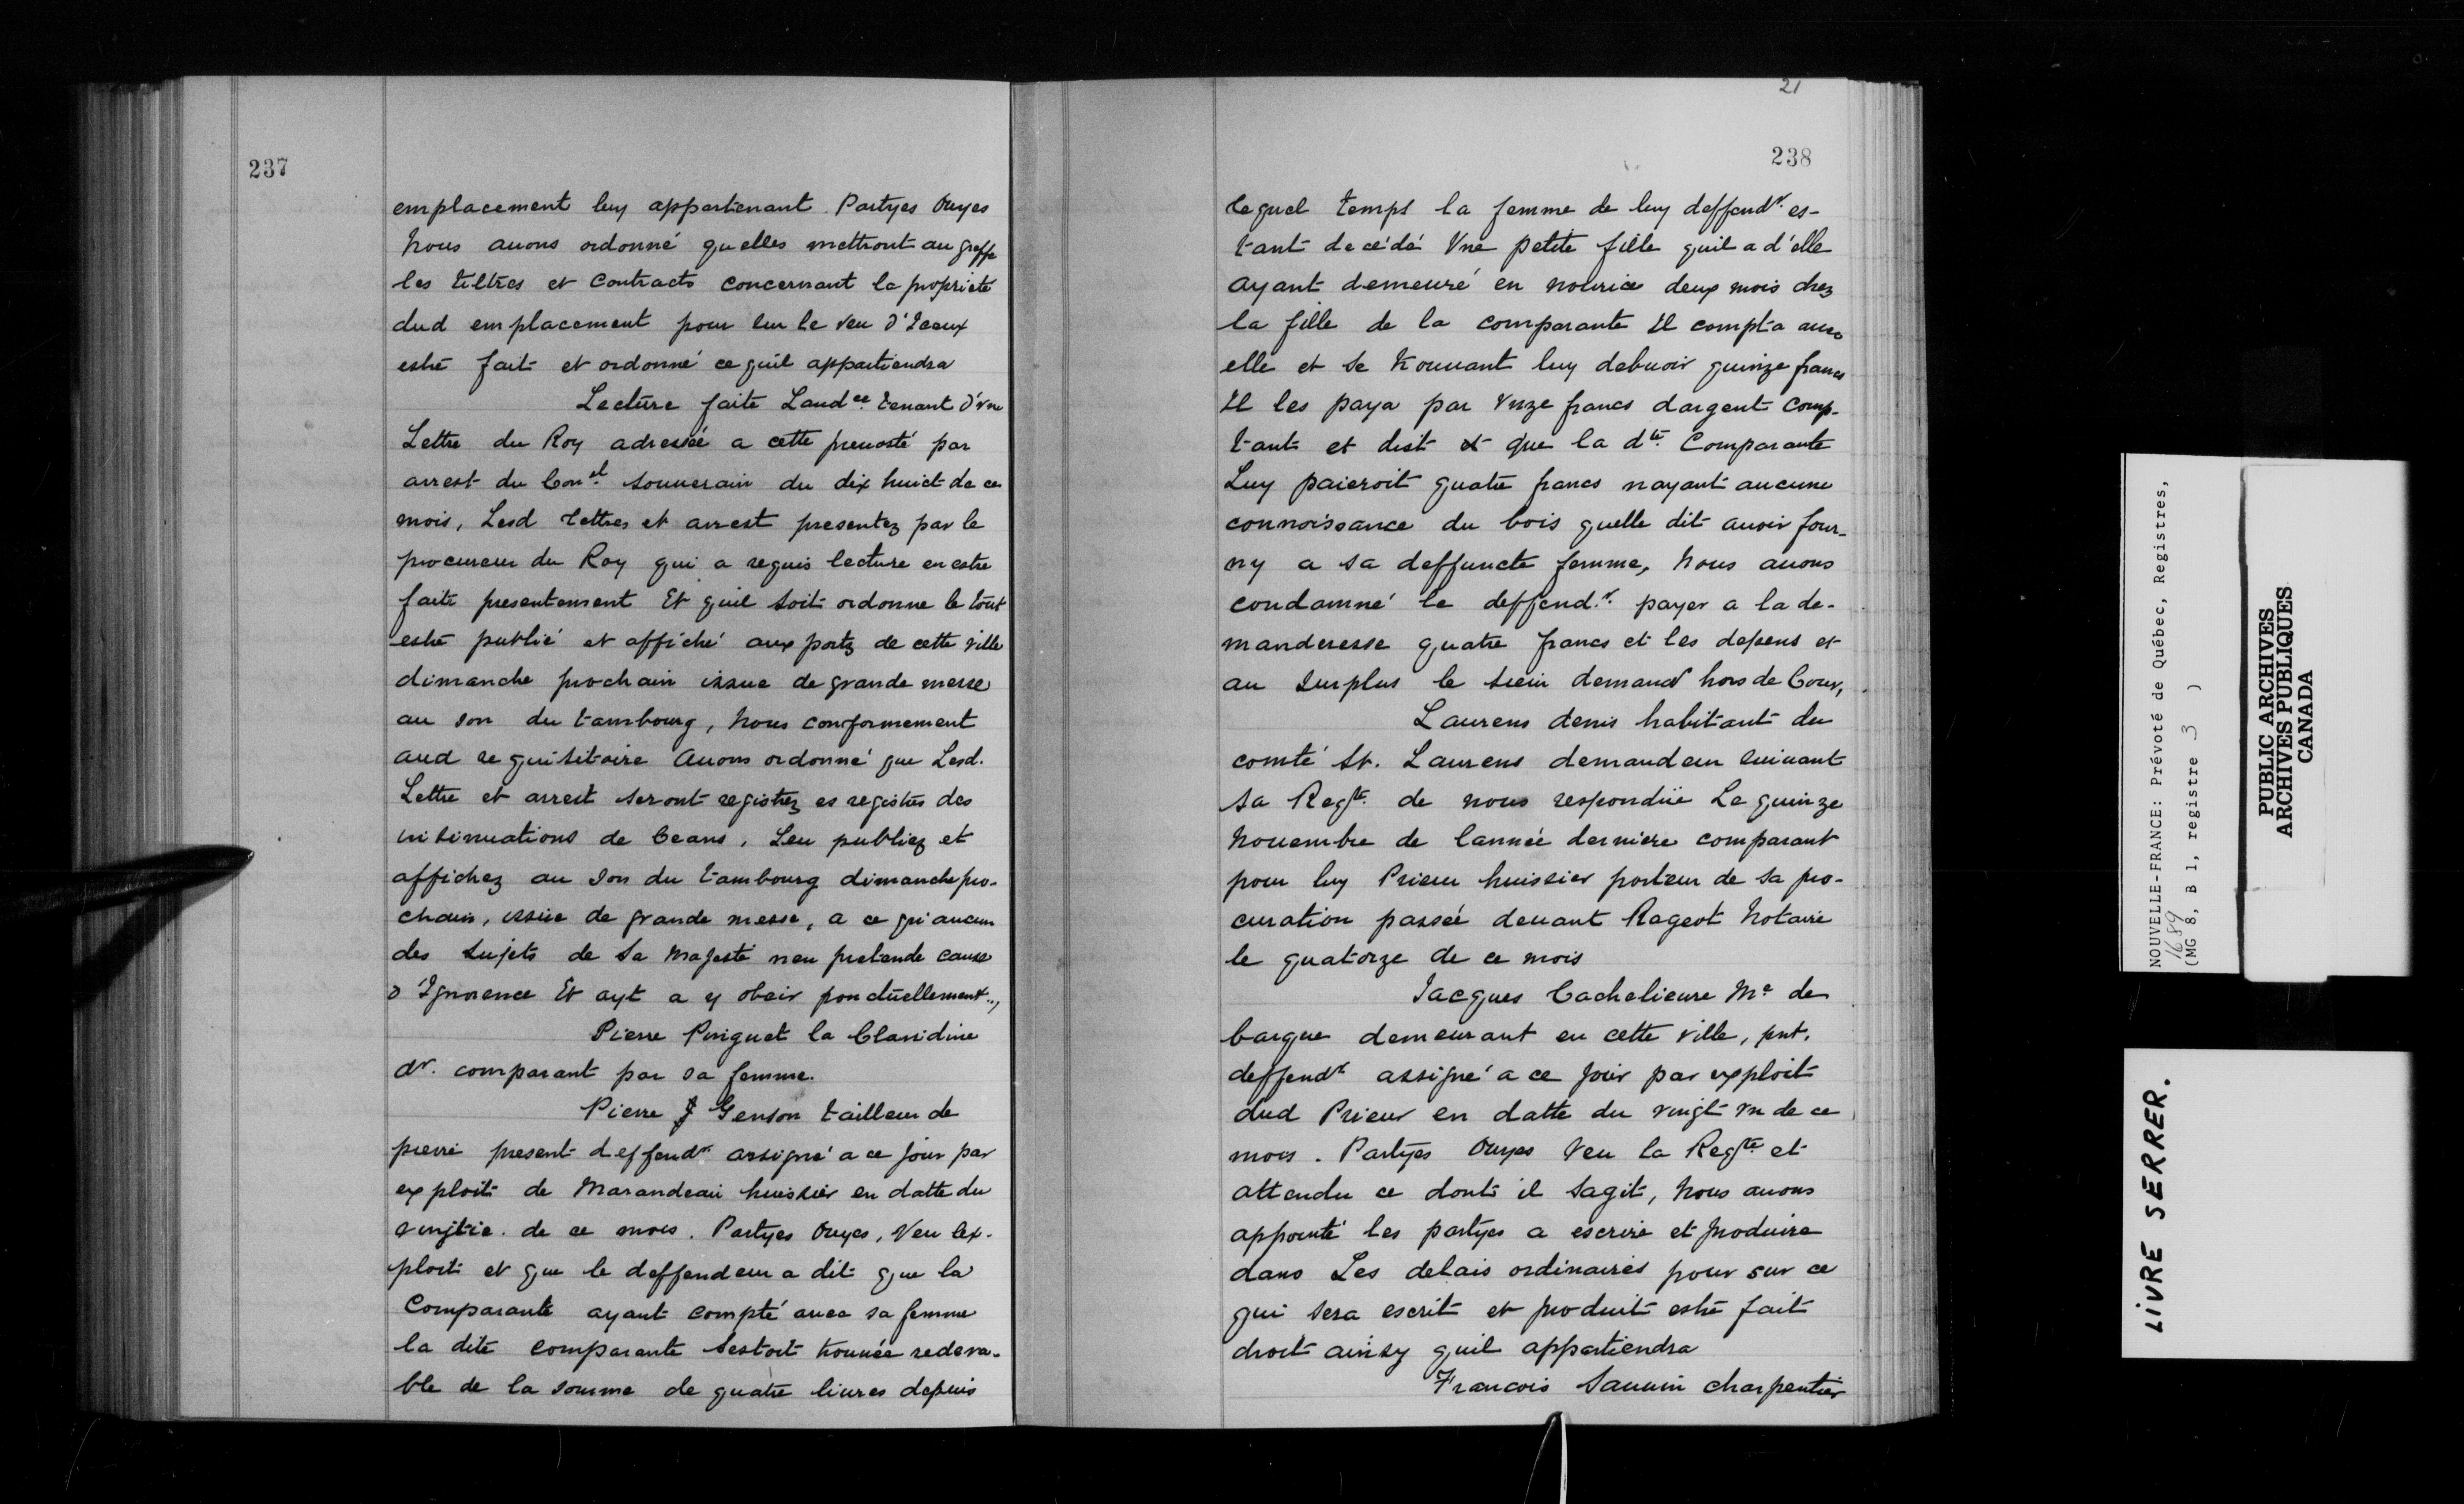 237
emplacement luy appartenant. Partyes Ouyes
Nous auons ordonné quelles mettront au greffe
les tiltres et Contracts concernant la proprieté
dud emplacement pour sur le veu d'Iceux
estre fait et ordonné ce quil appartiendra
Lecture faite Laudce. tenant d'vne
Lettre du Roy adressée a cette preuosté par
arrest du Conel. souuerain du dix huict de ce
mois, Lesd Lettres et arrest presentez par le
procureur du Roy qui a requis lecture en estre
faite presentement Et quil soit ordonne le tout
estre publié et affiché aux portz de cette ville
dimanche prochain issue de grande messe
au son du tambourg, Nous conformement
aud requisitoire Auons ordonné que Lesd.
Lettre et arrest seront registrez es registres des
insinuations de Ceans, Leu publiez et
affichez au son du tambourg dimanche pro-
chain, issüe de grande messe, a ce qui aucun
des sujets de Sa Majesté n'en pretende cause
d'Ignorence Et ayt a y obeir ponctüellement.,
Pierre Pinguet la Glaridine
dr. comparant par sa femme.
Pierre J Genson tailleur de
pierre present deffendr assigné a ce jour par
exploit de Marandeau huissier en datte du
vingtie. de ce mois. Partyes Ouyes, Veu lex-
ploit et que le deffendeur a dit que la
Comparante ayant compté auec sa femme
la dite comparante sestoit trouuée redeva-
ble de la somme de quatre liures depuis
21
238
lequel temps la femme de luy deffendr. es-
tant decédé Vne petite fille quil a d'elle
ayant demeuré en nourice deux mois chez
la fille de la comparante Il compta auec
elle et se trouuant luy debuoir quinze francs
Il les paya par vnze francs dargent comp-
tant et dict et que la dte. Comparante
Luy paieroit quatre francs nayant aucune
connoissance du bois quelle dit auoir four-
ny a sa deffuncte femme, Nous auons
condamné le deffend.r. payer a la de-
manderesse quatre francs et les depens et
au surplus le sieur demandr hors de Cour,
Laurens denis habitant du
comté St. Laurens demandeur suiuant
sa Reqte. de nous respondüe Le quinze
Nouembre de lannée derniere comparant
pour luy Prieur huissier porteur de sa pro-
curation passée deuant Rageot Notaire
le quatorze de ce mois
Jacques Cachelieure Me de
barque demeurant en cette ville, pnt.
deffendr assigné a ce jour par exploit
dud Prieur en datte du vingt vn de ce
mois. Partyes Ouyes Veu la Reqte et
attendu ce dont il sagit, Nous auons
appointé les partyes a escrire et produire
dans Les delais ordinaires pour sur ce
qui sera escrit et produit estre fait
droit ainsy quil appartiendra
Francois Sauuin charpentier
NOUVELLE-FRANCE: Prévoté de Québec, Registres,
1689
(MG 8, B 1, registre 3 )
PUBLIC ARCHIVES
ARCHIVES PUBLIQUES
CANADA
LIVRE SERRER.